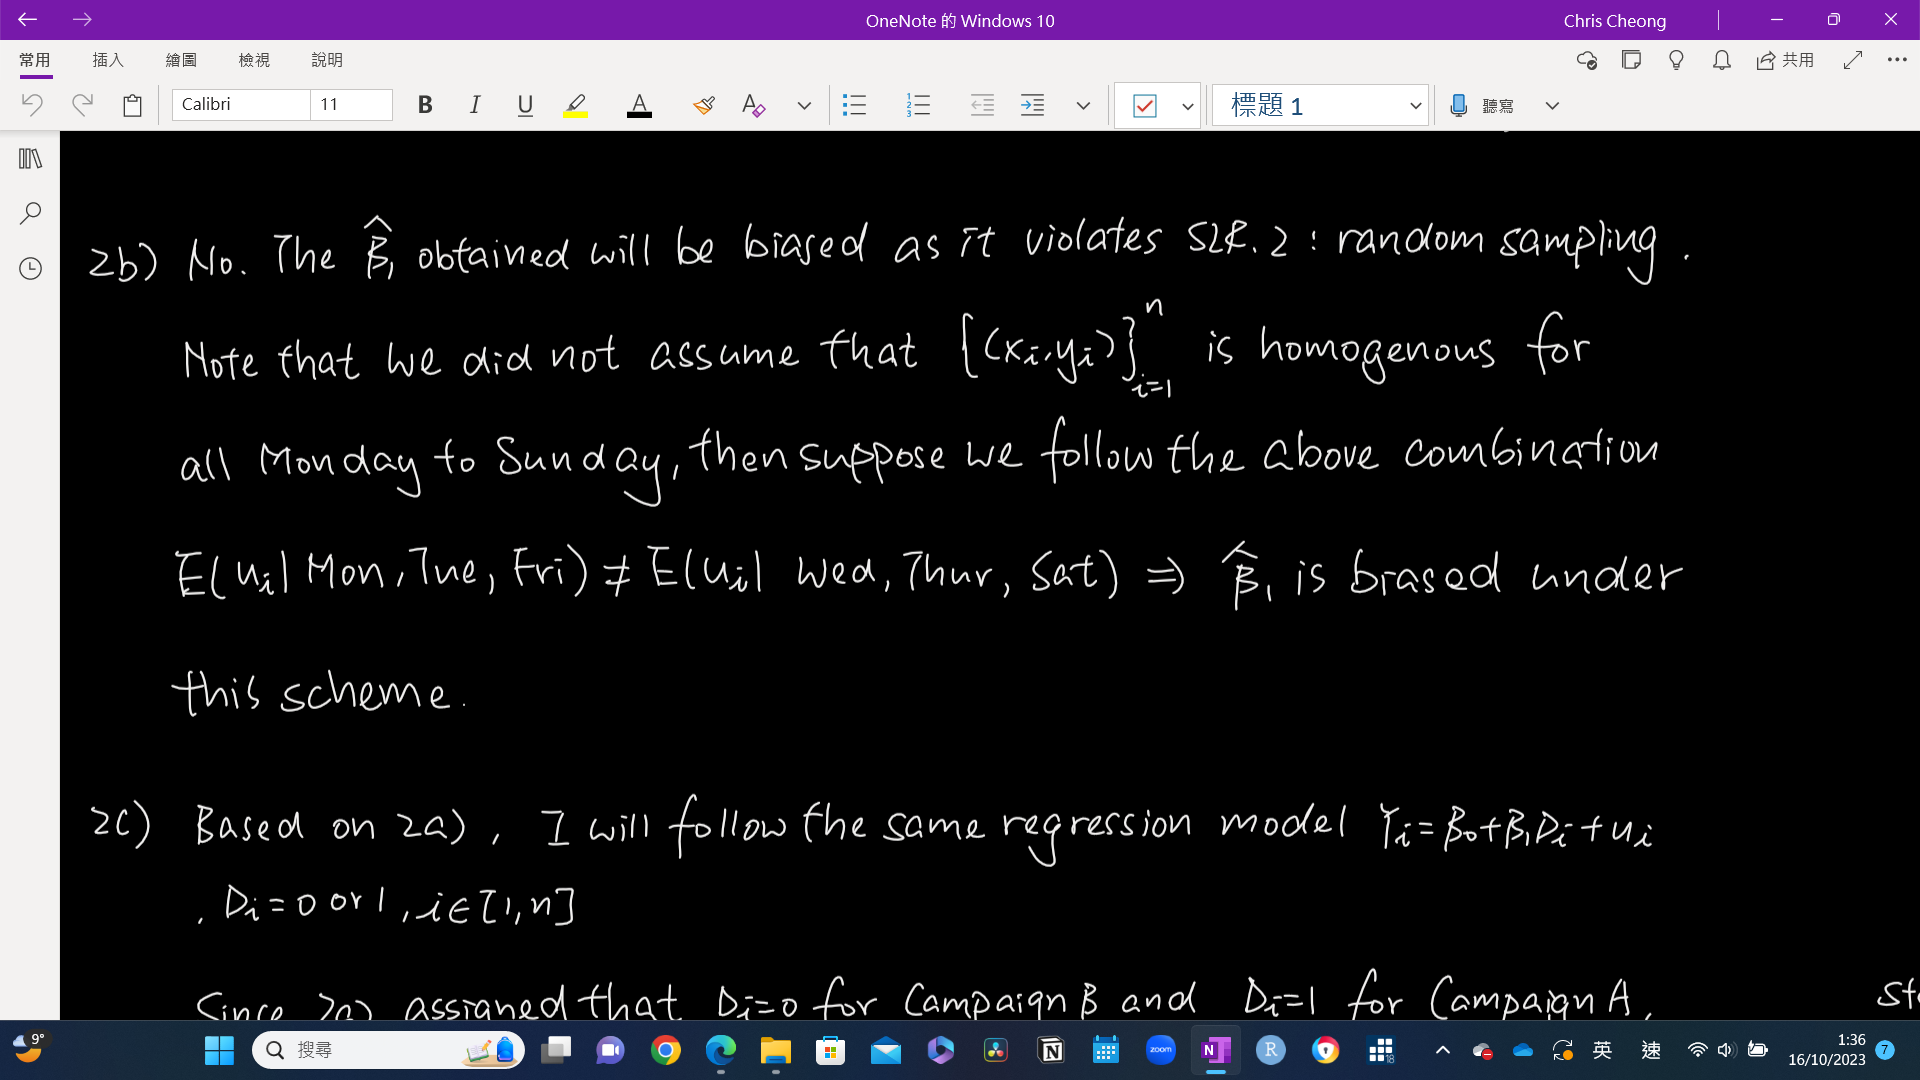 OneNote 的 Windows 10
Chris Cheong
常用 插入 繪圖 檢視 說明
共用
Calibri 11 B I U A A 標題 1 聽寫
2b) No. The β̂₁ obtained will be biased as it violates SLR.2 : random sampling.
Note that we did not assume that {(xi,yi)}ⁿi=1 is homogenous for
all Monday to Sunday, then suppose we follow the above combination
E(ui| Mon, Tue, Fri) ≠ E(ui| Wed, Thur, Sat) ⇒ β̂₁ is biased under
this scheme.
2c) Based on 2a), I will follow the same regression model Yi=β₀+β₁Di+ui
, Di=0 or 1, i∈[1,n]
Since 2a) assigned that Di=0 for Campaign B and Di=1 for Campaign A.
9°
搜尋
zoom
N
R
18
英
速
1:36
16/10/2023
7